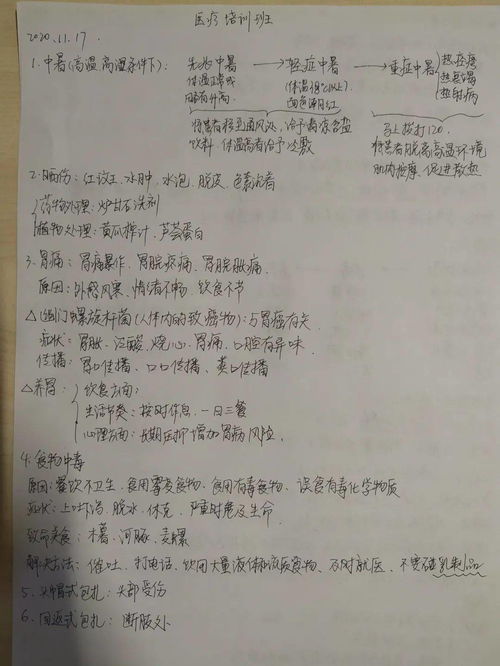 医疗培训班
2020.11.17.
1.中暑(高温、高湿条件下): 先兆中暑 → 轻症中暑 → 重症中暑 { 热痉挛
体温正常或 (体温38℃以上) 热衰竭
略有升高 面色潮红 热射病
将患者移至通风处,给予清凉含盐 马上拨打120.
饮料.体温高者给予冷敷 将患者脱离高温环境
肌肉按摩、促进散热
2.晒伤:红斑、水肿、水泡、脱皮、色素沉着
药物处理:炉甘石洗剂
植物处理:黄瓜榨汁、芦荟蛋白
3.胃痛:胃痛暴作、胃脘疼痛、胃脘胀痛.
原因:外感风寒、情绪不畅、饮食不节
△幽门螺旋杆菌(人体内的致癌物):与胃癌有关
症状:胃胀、泛酸、烧心、胃痛、口腔有异味.
传播:胃口传播、口口传播、粪口传播
△养胃: 饮食方面:
生活节奏:按时作息、一日三餐
心理方面:长期压抑增加胃病风险.
4.食物中毒
原因:餐饮不卫生、食用霉变食物、食用有毒食物、误食有毒化学物质
症状:上吐下泻、脱水、休克、严重时危及生命.
致命美食:木薯、河豚、麦螺
解决方法:催吐、打电话、饮用大量液体和流质食物、及时就医、不要碰乳制品
5.头帽式包扎:头部受伤
6.回返式包扎:断肢处